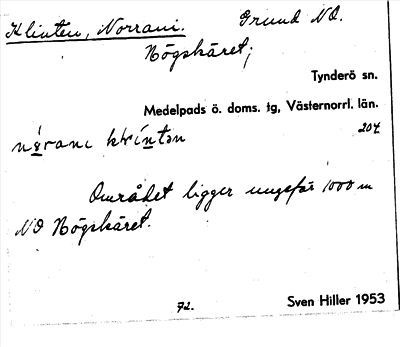 Klinten, Norrani. Grund NO.
Högskäret;
Tynderö sn.
Medelpads ö. doms. tg, Västernorrl. län.
204
Området ligger ungefär 1000 m
NO Högskäret.
72. Sven Hiller 1953